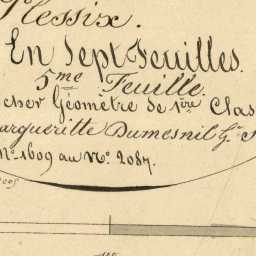 Plessix.
En Sept Feuilles.
5me Feuille.
cher Géomètre de 1ère Clas
argueritte Dumesnil Gé
No. 1609 au No. 2087.